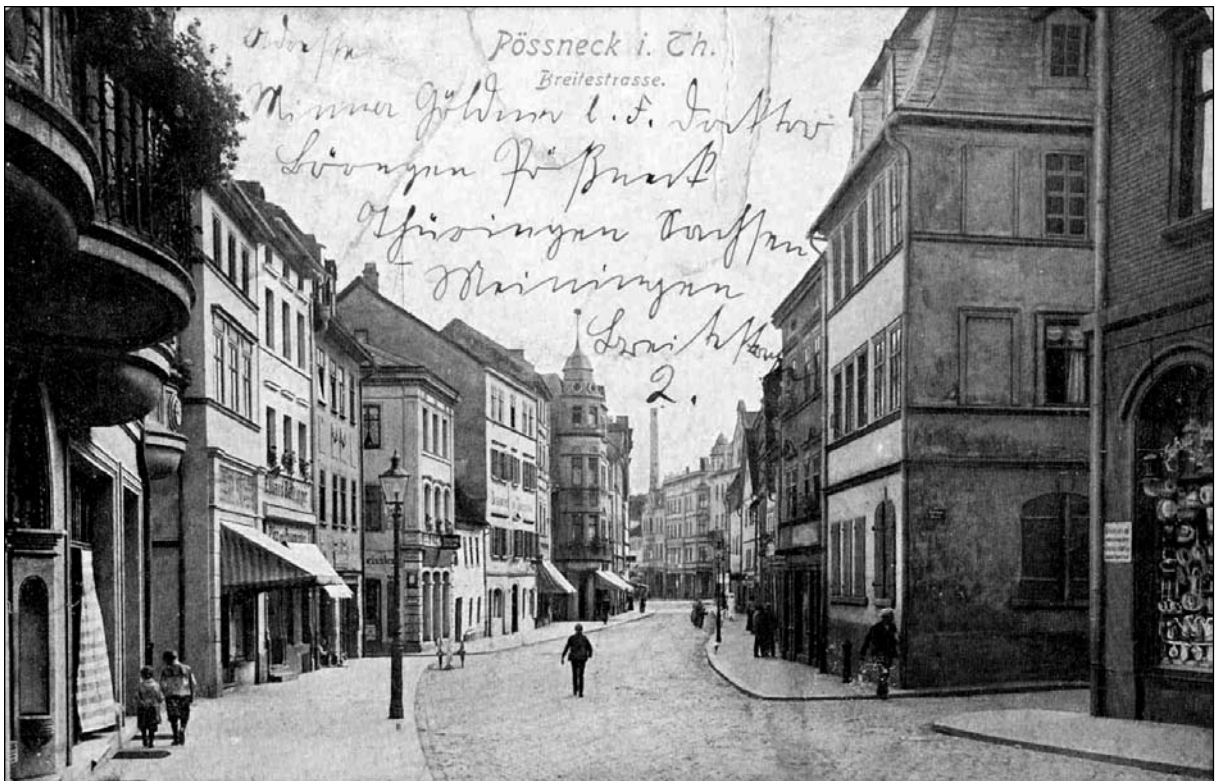 Adresse
Pössneck i. Th.
Breitestrasse.
Minna Göldner b. F. Doktor
Pößneck
Thüringen Sachsen
Meiningen
Breitestra
2.